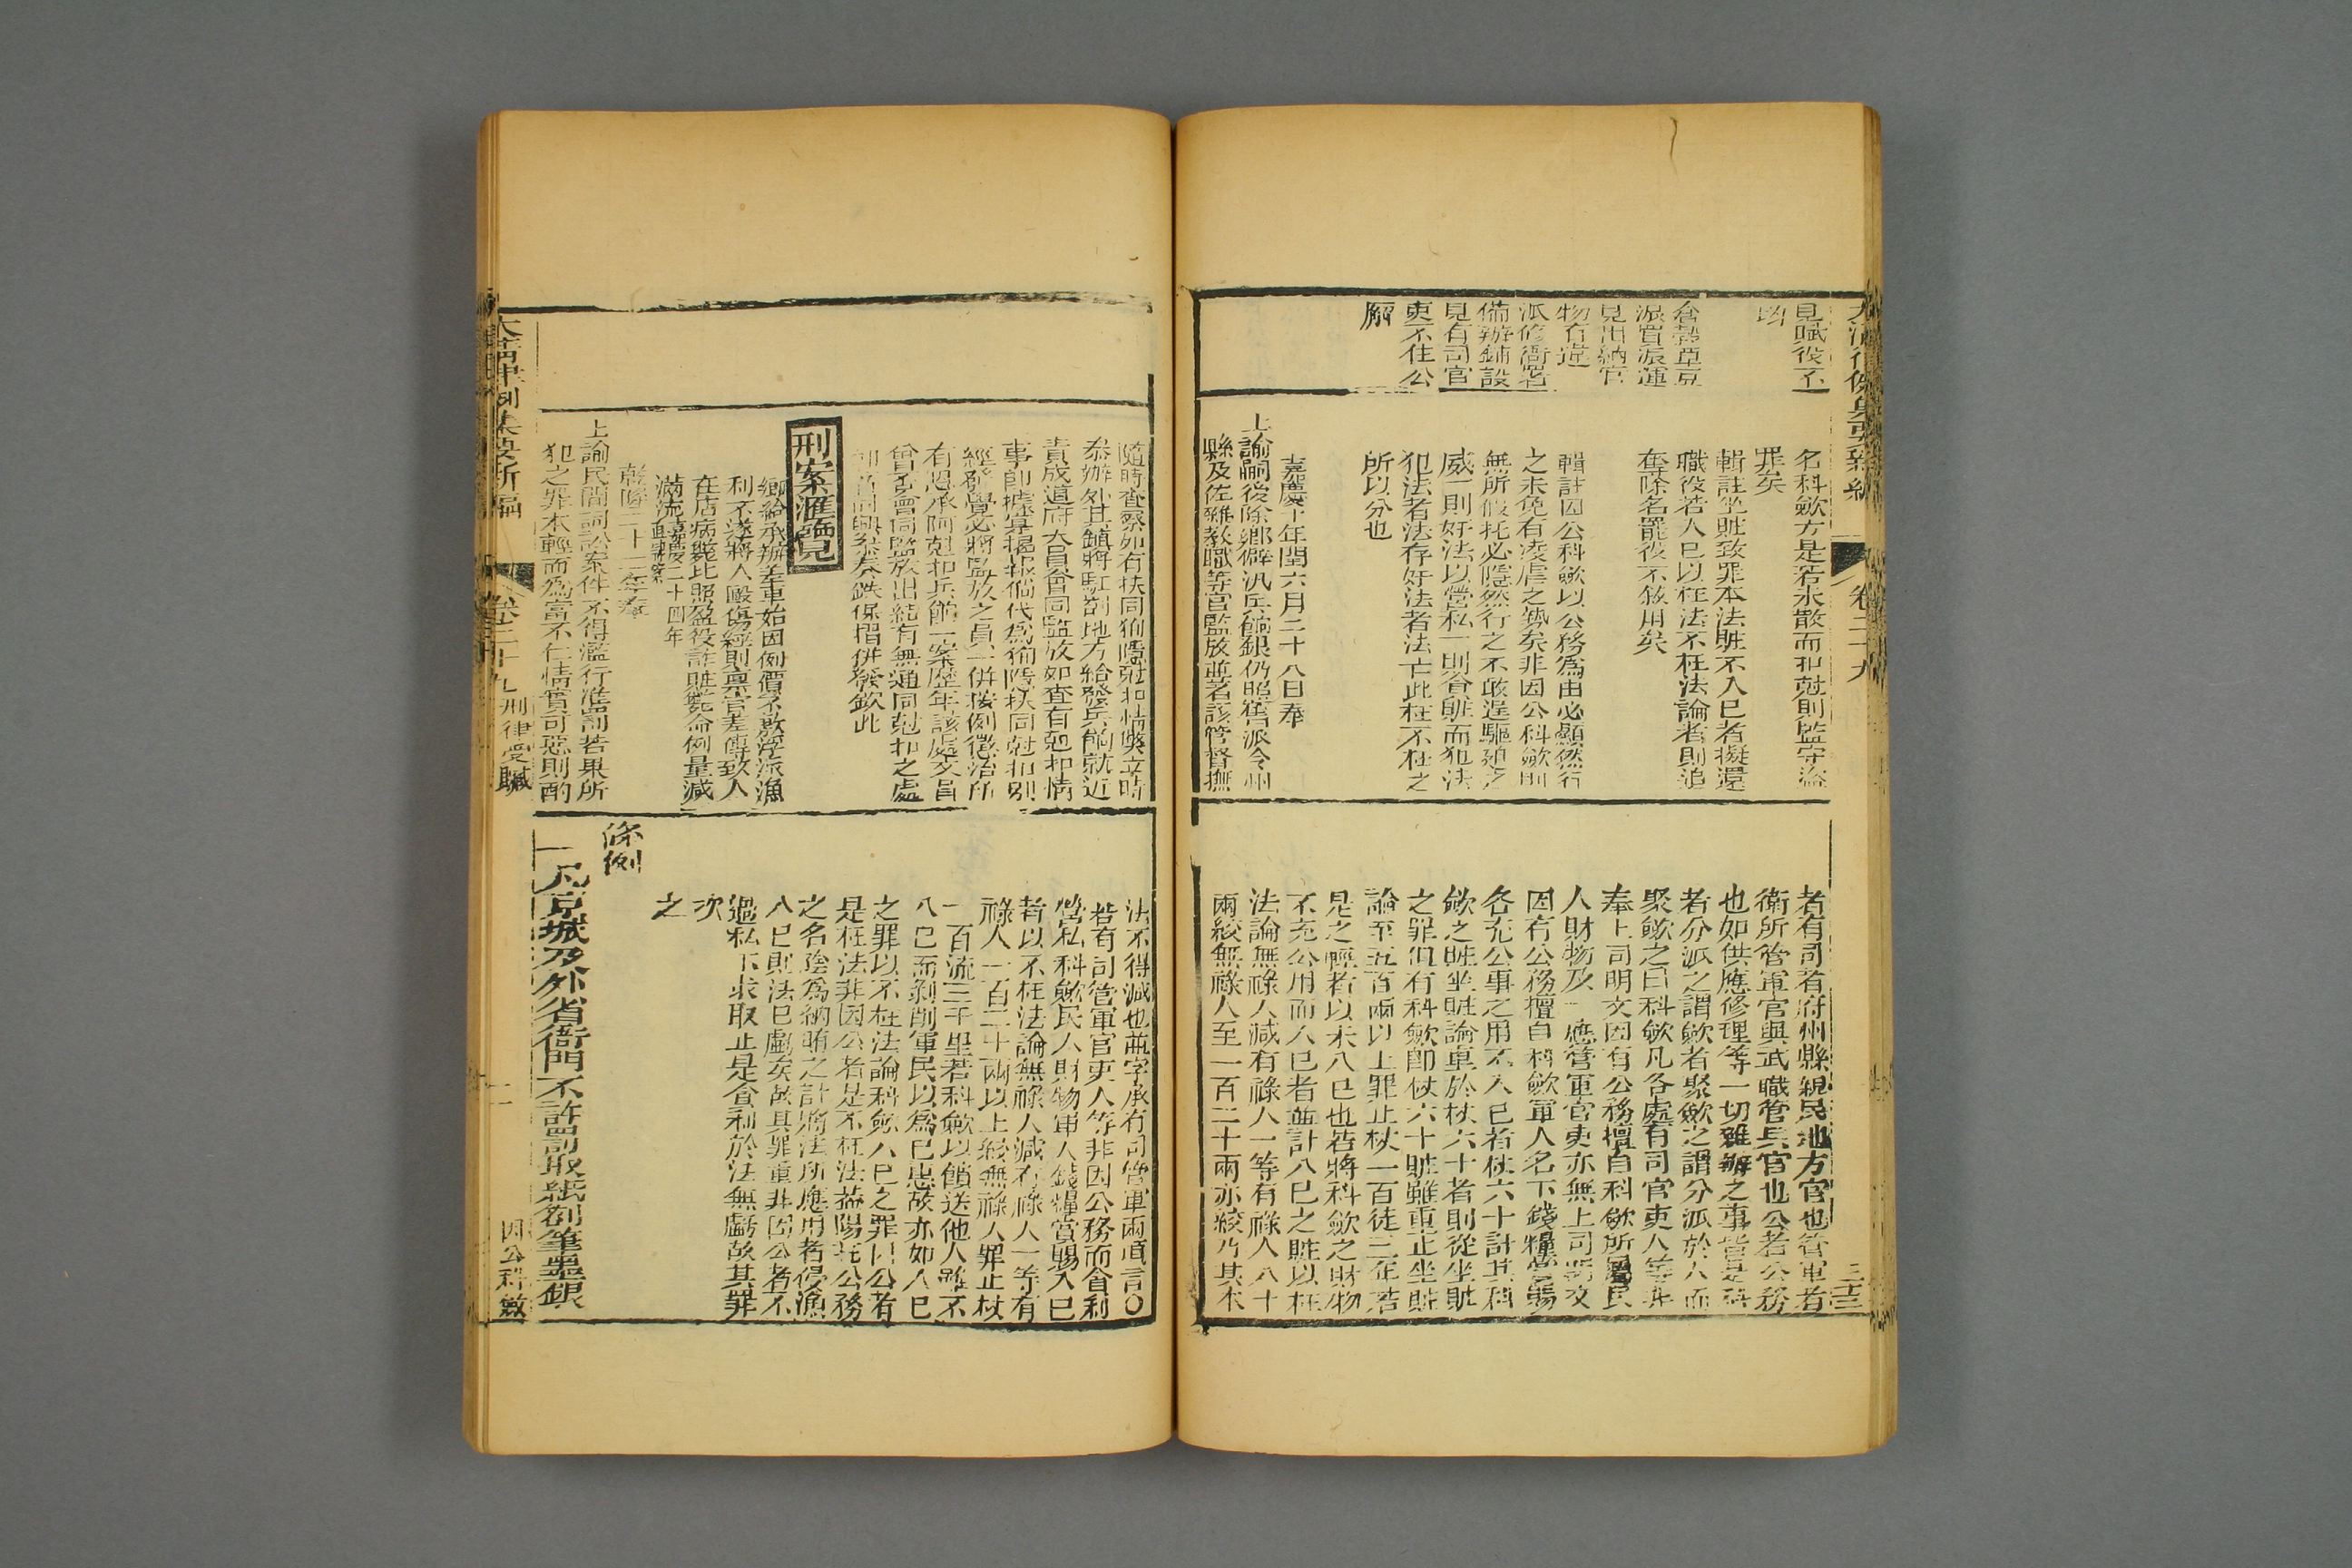 見賦役不
均
倉熱草豆
派買派運
見出納官
物有違
派修衙署
備辦鋪設
見有司官
吏不住公
廨
名科斂方是若未散而扣尅則監守盜
罪矣
輯註坐贓致罪本法贓不入己者擬還
職役若入己以枉法不枉法論者則追
奪除名罷役不敘用矣
輯註因公科斂以公務為由必顯然行
之未免有凌虐之勢矣非因公科斂則
無所假托必隱然行之不敢逞驅迫之
威一則奸法以營私一則貪贓而犯法
犯法者法存奸法者法亡此枉不枉之
所以分也
嘉慶十年閏六月二十八日奉
上諭嗣後除鄉僻汎兵餉銀仍照舊派令州
縣及佐雜教職等官監放並著該管督撫
者有司者府州縣親民地方官也管軍者
衛所管軍官與武職管兵官也公者公務
也如供應修理等一切雜辦之事皆是科
者分派之謂斂者聚斂之謂分派於人而
聚斂之曰科斂凡各處有司官吏人等非
奉上司明文因有公務擅自科斂所屬民
人財物及 應管軍官吏亦無上司明文
因有公務擅自科斂軍人名下錢糧賞賜
各充公事之用不入己者杖六十計其科
斂之贓坐贓論重於杖六十者則從坐贓
之罪但有科斂即杖六十贓雖重止坐贓
論至五百兩以上罪止杖一百徒三年若
是之輕者以未入己也若將科斂之財物
不充公用而入己者並計入己之贓以枉
法論無祿人減有祿人一等有祿人八十
兩絞無祿人至一百二十兩亦絞乃其本
隨時查察如有扶同狥隱尅扣情獘立時
叅辦外其鎮將駐劄地方給發兵餉就近
責成道府大員會同監放如查有尅扣情
事即據實揭報倘代為狥隱扶同尅扣別
經發覺必將監放之員一併按例懲治所
有恩承阿尅扣兵餉一案歷年該處文員
曾否會同監放出結有無通同尅扣之處
刑案滙覽
鄉給承辦差車始因例價不敷浮派漁
利不遂將人毆傷經則稟官差傳致人
在店病斃比照蠹役詐贓斃命例量減
乾隆二十二年奉
上諭民間詞訟案件不得濫行准罰若果所
犯之罪本輕而為富不仁情實可惡則酌
法不得減也並字承有司管軍兩項言〇
若有司管軍官吏人等非因公務而貪利
營私科斂民人財物軍人錢糧賞賜入己
者以不枉法論無祿人減有祿人一等有
祿人一百二十兩以上絞無祿人罪止杖
一百流三千里若科斂以饋送他人雖不
入己而剝削軍民以為己惠故亦如入己
之罪以不枉法論科斂入己之罪因公者
是枉法非因公者是不枉法葢陽托公務
之名陰為納賄之計將法所應用者侵漁
入己則法已虧矣故其罪重非因公者不
過私下求取止是貪利於法無虧故其罪
次
之
條例
一凡京城及外省衙門不許罰取紙劄筆墨銀
刑律受贓
因公科斂